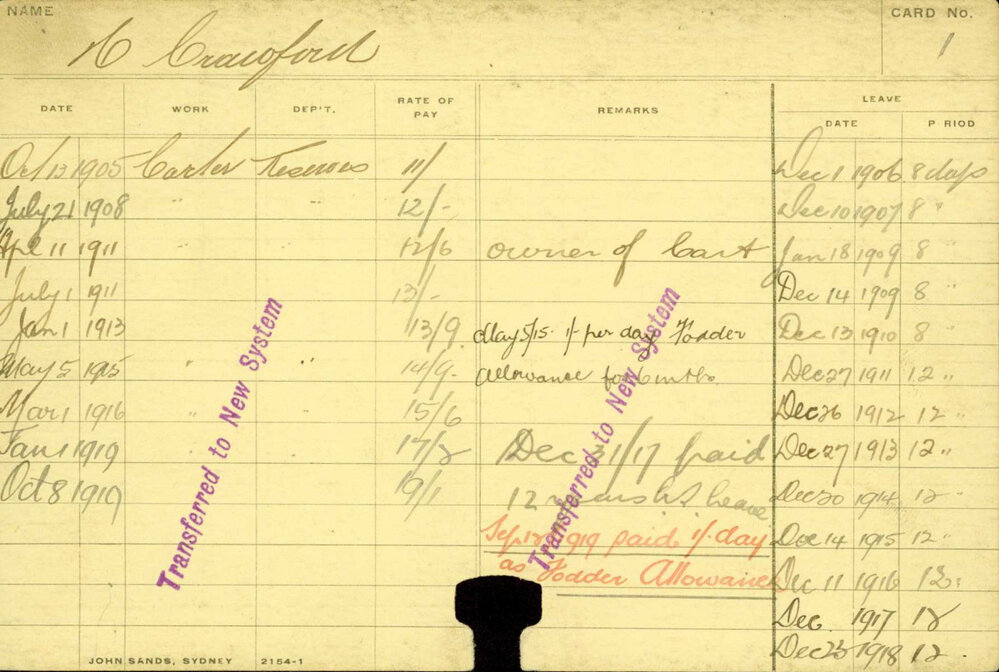 NAME
CARD No.
Crawford
1
DATE WORK DEP'T. RATE OF PAY REMARKS LEAVE
DATE P RIOD
Oct 13 1905 Carter Reserves 11/ Dec 1 1906 8 days
July 21 1908 " " 12/- Dec 10 1907 8 "
Apl 11 1911 " " 12/6 owner of Cart Jan 18 1909 8 "
July 1 1911 13/- Dec 14 1909 8 "
Jan 1 1913 13/9 May 5/15 1/- per day Fodder Dec 13 1910 8 "
May 5 1915 " " 14/9 Allowance for 6 mths. Dec 27 1911 12 "
Mar 1 1916 " 15/6 Dec 26 1912 12 "
Jan 1 1919 17/2 Dec 31/17 paid Dec 27 1913 12 "
Oct 8 1919 19/1 12 leave Dec 20 1914 12 "
1919 paid 1/- day Dec 14 1915 12 "
as Fodder Allowance Dec 11 1916 12 "
Dec. 1917 12
Dec 23 1918 12 "
Transferred to New System
Transferred to New System
JOHN SANDS, SYDNEY 2154-1